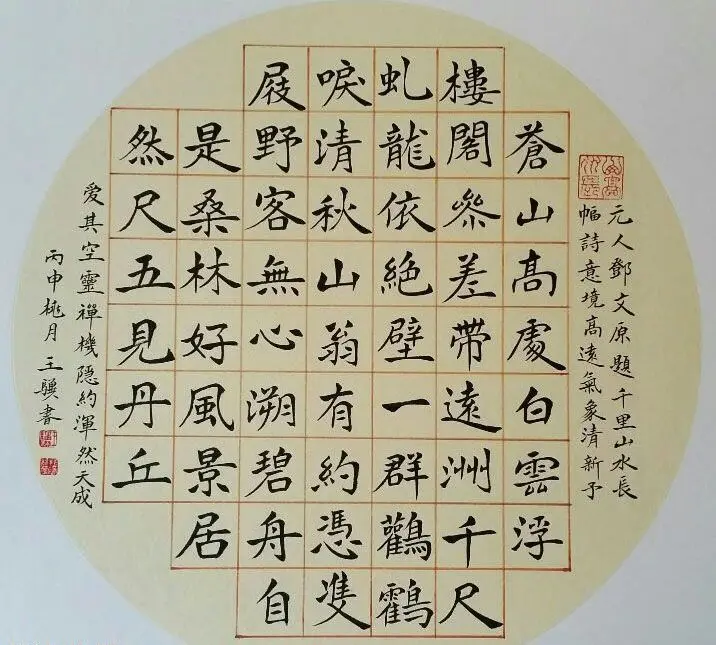 元人鄧文原題千里山水長
幅詩意境高遠氣象清新予
蒼山髙處白雲浮
樓閣參差帶遠洲千尺
虬龍依絶壁一群鸛鶴
唳清秋山翁有約憑隻
屐野客無心溯碧舟自
是桑林好風景居
然尺五見丹丘
爱其空靈禪機隱約渾然天成
丙申桃月王書